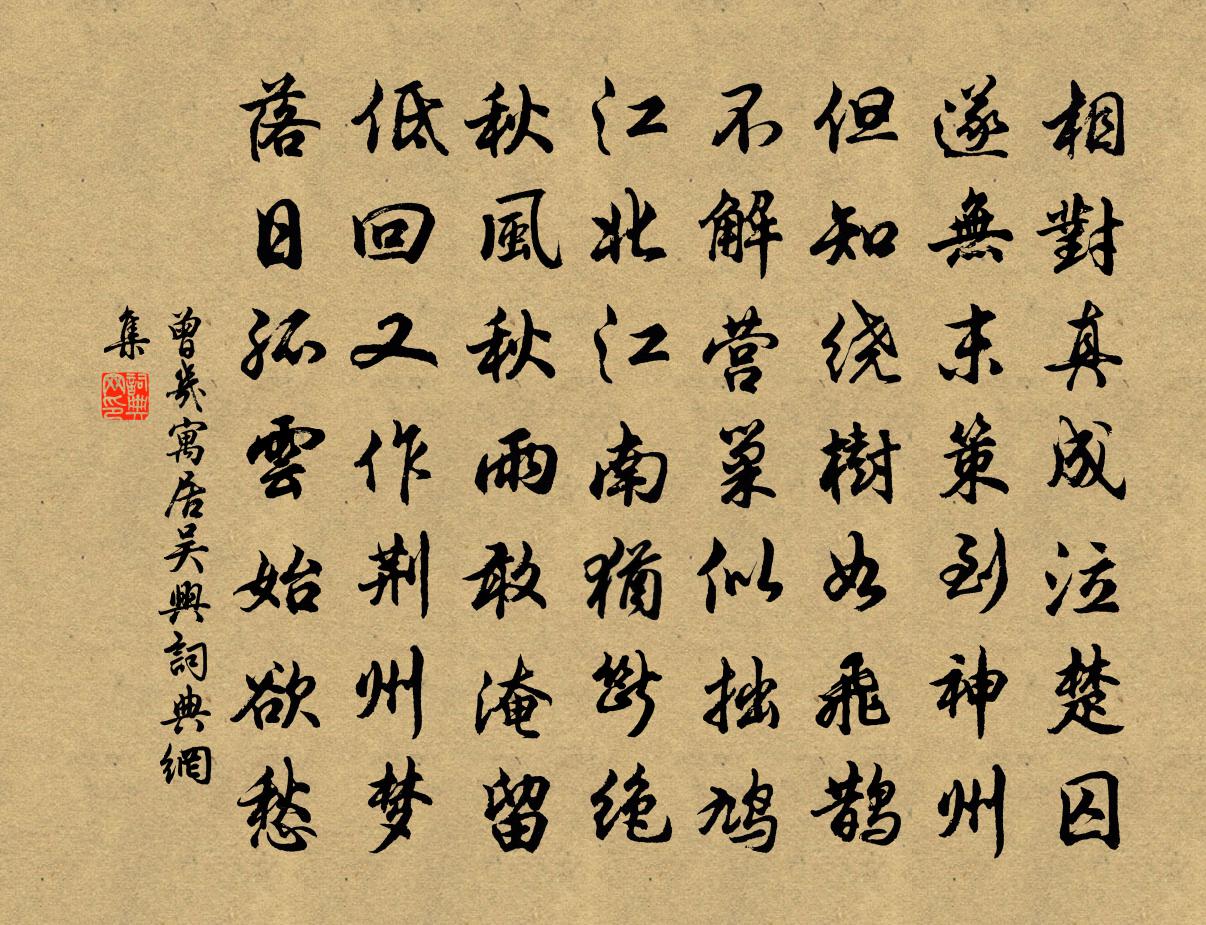 相對真成泣楚囚
遂無末策到神州
但知绕樹如飛鹊
不解营巢似拙鸠
江北江南猶斷绝
秋風秋雨敢淹留
低回又作荆州梦
落日孤雲始欲愁
曾幾寓居吴興詞典網
集
詞典網印